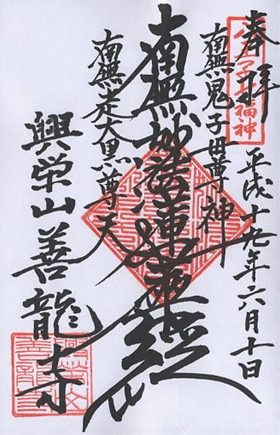 奉拝
八王子七福神
平成十九年六月十日
南無鬼子母尊神
南無妙法蓮華経
南無大黒尊天
興栄山善龍寺